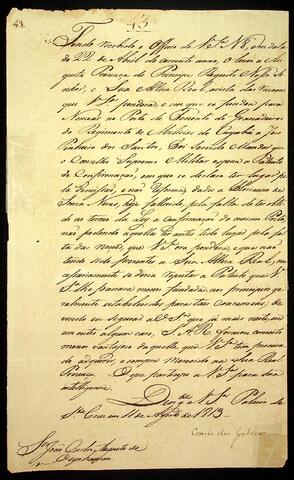 43.
13
Tendo recebido o Officio de V. S.ª N.º 8, em data
de 22 de Abril do corrente anno, O levei a Au
gusta Presença do Principe Regente Nosso Se
nhor, e Sua Alteza Real, á vista das razoens
que V. S.ª pondera, e em que se funda para
Nomear no Posto de Tenente de Granadeiros
do Regimento de Milicias de Cuyabá a João
Poderoso dos Santos, Foi Servido Mandar
que o Conselho Supremo Militar a Patente
de Confirmação, em que se declara ter lugar pe
la demissão, e não Reforma, dado a
Souza Neves, hoje fallecido, pela falta de ter obti
do no termo da Ley a Confirmação do mesmo Posto,
não podendo aquella ter sido lugar pela fal
ta das razoens, que V. S.ª ora pondera, e que não
tendo sido presentes a Sua Alteza Real, ne
cessariamente se devia reputar a Patente que V.
S.ª lhe passara menos fundada nos principios ge
ralmente estabelecidos, para taes concessoens, de
vendo eu segurar a V. S.ª que já mais nestas, ou
em outro algum caso, S. A. R. formou conceito
menos vantajoso do que aquelle que V. S.ª tem procura
do adquirir, e sempre Merecido na Sua Real
Presença. O que participo a V. S.ª para sua
intelligencia.
Deos g.de a V. S.ª Palacio de
S.ta Cruz em 11 de Agosto de 1813
Conde das Galveas
S.r João Carlos Augusto de
Oeynhausen